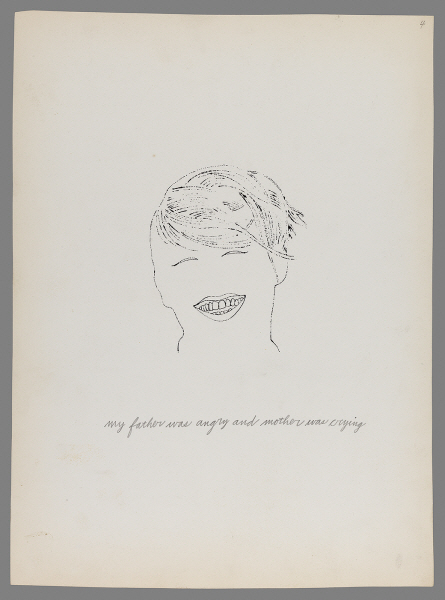 my father was angry and mother was crying